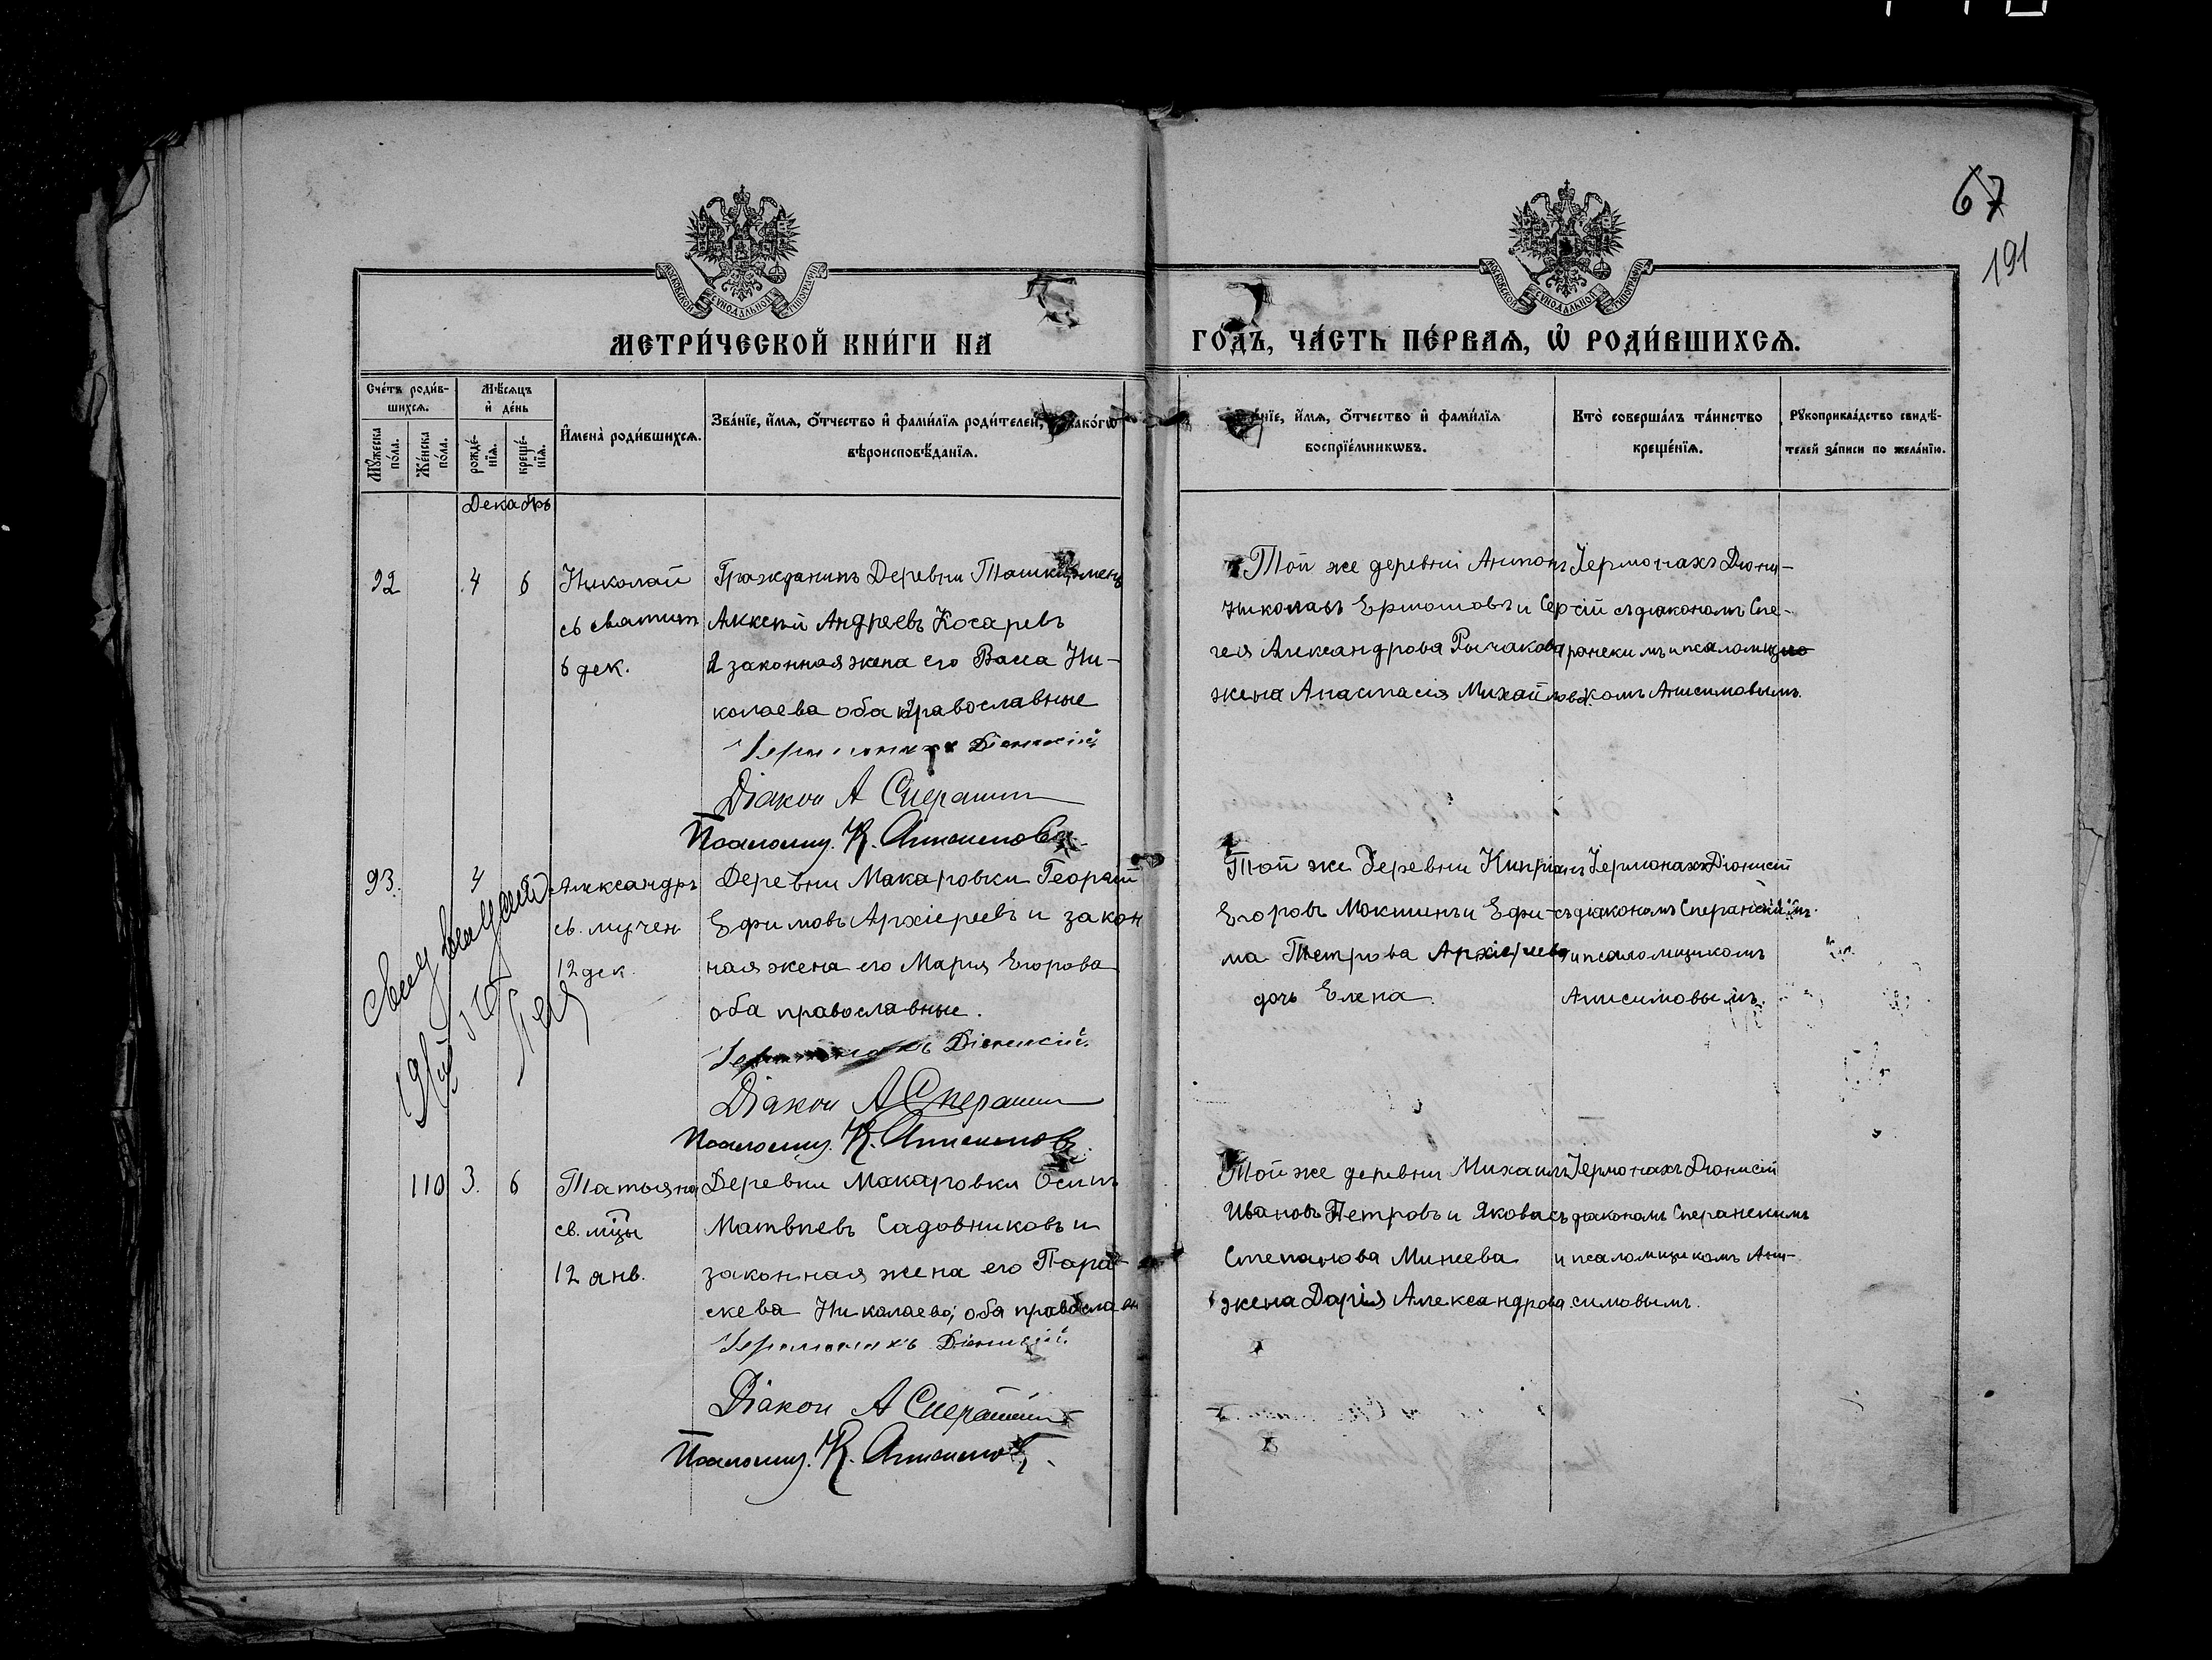 67
191
МОСКОВСКОЙ СУНОДАЛЬНОЙ ТИПОГРАФІИ
МОСКОВСКОЙ СУНОДАЛЬНОЙ ТИПОГРАФІИ
МЕТРИ́ЧЕСКОЙ КНИ́ГИ НА
ГО́ДЪ, ЧА́СТЬ ПЕ́РВАѦ, Ѡ҆ РОДИ́ВШИХСѦ.
Сче́тъ роди́в-
шихсѧ.
Мꙋ́жеска по́ла.
Же́нска по́ла.
Мѣ́сѧцъ
и҆ де́нь
рожде́-
нїѧ.
креще́-
нїѧ.
И҆мена̀ роди́вшихсѧ.
Зва́нїе, и҆́мѧ, ѻ҆́тчество и҆ фами́лїѧ роди́телей,
вѣроисповѣ́данїѧ.
и҆́мѧ, ѻ҆́тчество и҆ фами́лїѧ
воспрїе́мникѡвъ.
Кто̀ соверша́лъ та́инство
креще́нїѧ.
Рꙋкоприкла́дство свидѣ́-
телей за́писи по жела́нїю.
Декабрь
92 4 6 Николай
св святит
6 дек.
Гражданинъ Деревни
Андреевъ Косаревъ
и законная жена его Васса Ни-
колаева оба православные
Іеромонахъ Діонисій
Діаконъ А Сперанскій
Псаломщ. К. Анисимовъ
Той же деревни Антонъ
Николаевъ Ермошовъ и Сер-
гея Александрова Рычакова
жена Анастасія Михайлова.
Іермонахъ Діони-
сій съ діакономъ Спе-
ранскимъ и псаломщ
комъ Анисимовымъ.
93. 4 Александръ
св. мучен
12 дек.
Деревни Макаровки Георгій
Ефимовъ Архіереевъ и закон
ная жена его Марія Егорова
оба православные.
Іеромонахъ Діонисій.
Діаконъ А Сперанскій
Псаломщ. К. Анисимовъ.
Той же деревни Кипріанъ
Егоровъ Мокшинъ и Ефи-
ма Петрова Архіереева
дочь Елена.
Іермонахъ Діонисій
съ діакономъ Сперанскимъ.
и псаломщикомъ
Анисимовымъ.
110 3. 6 Татьяна
св. мцы
12 янв.
Деревни Макаровки Осипъ
Матвѣевъ Садовниковъ и
законная жена его Пара-
скева Николаева; оба православн
Іеромонахъ Діонисій.
Діаконъ А Сперанскій
Псаломщ. К. Анисимовъ.
Той же деревни Михаилъ
Ивановъ Петровъ и Якова
Степанова Минеева
жена Дарія Александрова
Іермонахъ Діонисій
съ діакономъ Сперанскимъ
и псаломщикомъ Ани-
симовымъ.